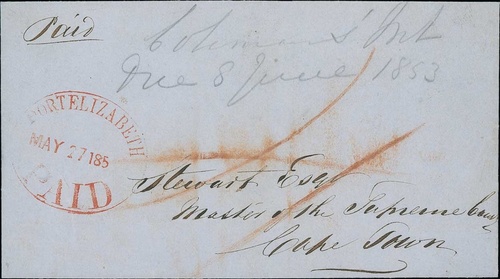 Paid
Due 8 June 1853
PORT ELIZABETH
MAY 27 185
PAID
Stewart Esqr
Master of the Supreme Court
Cape Town